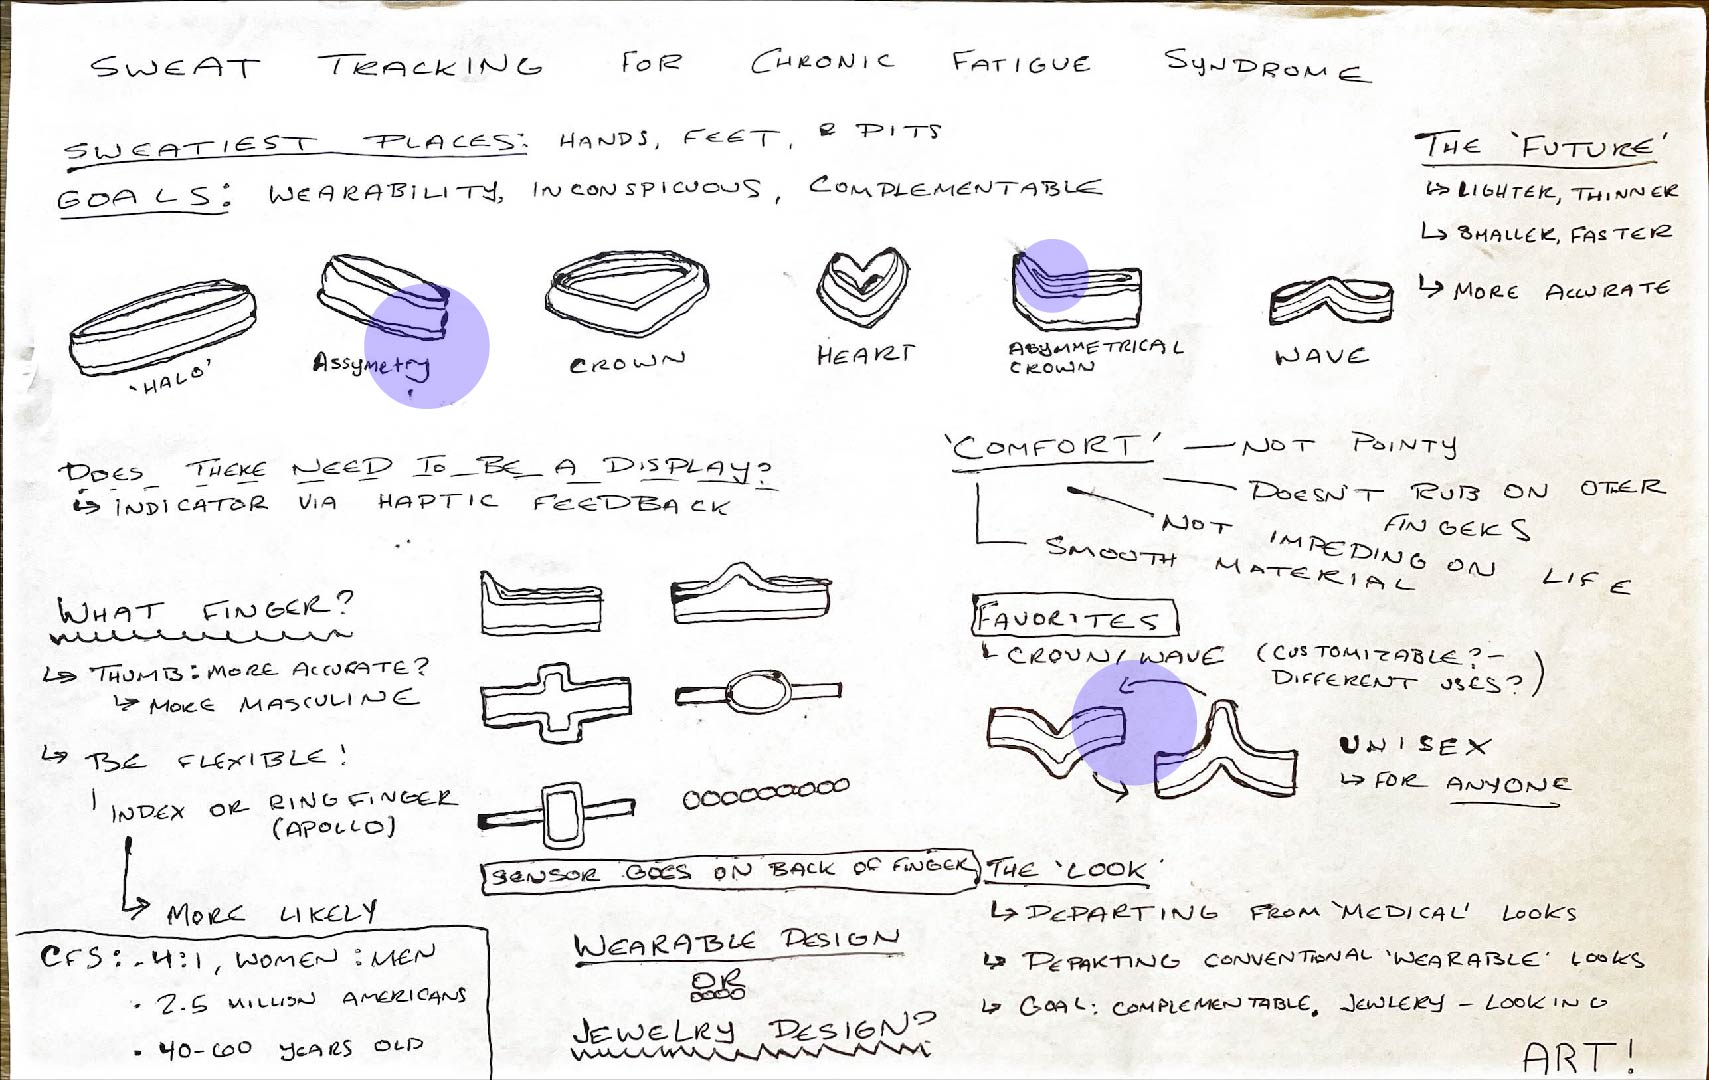 SWEAT TRACKING FOR CHRONIC FATIGUE SYNDROME
SWEATIEST PLACES: HANDS, FEET, & PITS
GOALS: WEARABILITY, INCONSPICUOUS, COMPLEMENTABLE
THE 'FUTURE'
↳ LIGHTER, THINNER
↳ SMALLER, FASTER
↳ MORE ACCURATE
'HALO'
ASSYMETRY
CROWN
HEART
ASYMMETRICAL
CROWN
WAVE
DOES THERE NEED TO BE A DISPLAY?
↳ INDICATOR VIA HAPTIC FEEDBACK
'COMFORT' — NOT POINTY
— DOESN'T RUB ON OTHER
FINGERS
NOT IMPEDING ON LIFE
SMOOTH MATERIAL
WHAT FINGER?
↳ THUMB: MORE ACCURATE?
↳ MORE MASCULINE
↳ BE FLEXIBLE!
INDEX OR RING FINGER
(APOLLO)
↳ MORE LIKELY
CFS: ~4:1, WOMEN : MEN
• 2.5 MILLION AMERICANS
• 40-60 YEARS OLD
SENSOR GOES ON BACK OF FINGER
WEARABLE DESIGN
OR
JEWELRY DESIGN?
FAVORITES
↳ CROWN/WAVE (CUSTOMIZABLE? -
DIFFERENT USES?)
UNISEX
↳ FOR ANYONE
THE 'LOOK'
↳ DEPARTING FROM 'MEDICAL' LOOKS
↳ DEPARTING CONVENTIONAL 'WEARABLE' LOOKS
↳ GOAL: COMPLEMENTABLE. JEWLERY - LOOKING
ART!